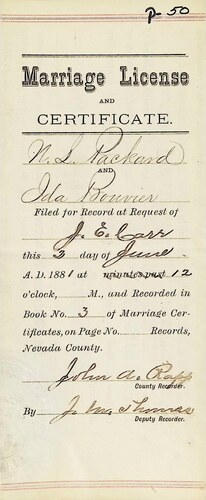 p-50
Marriage License
AND
CERTIFICATE.
N. L. Packard
AND
Ida Bouvier
Filed for Record at Request of
J. E. Carr
this 3 day of June
A. D. 1881 at minutes past 12
o'clock, M., and Recorded in
Book No. 3 of Marriage Cer-
tificates, on Page No. Records,
Nevada County.
John A. Rapp
County Recorder.
By J. M. Thomas
Deputy Recorder.